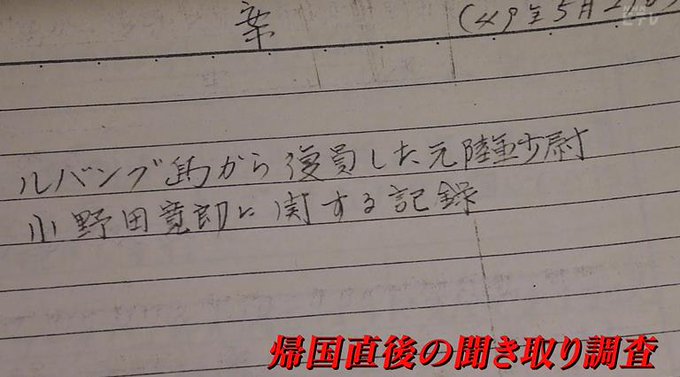 案
(49年5月
ルバング島から復員した元陸軍少尉
小野田寛郎に関する記録
帰国直後の聞き取り調査